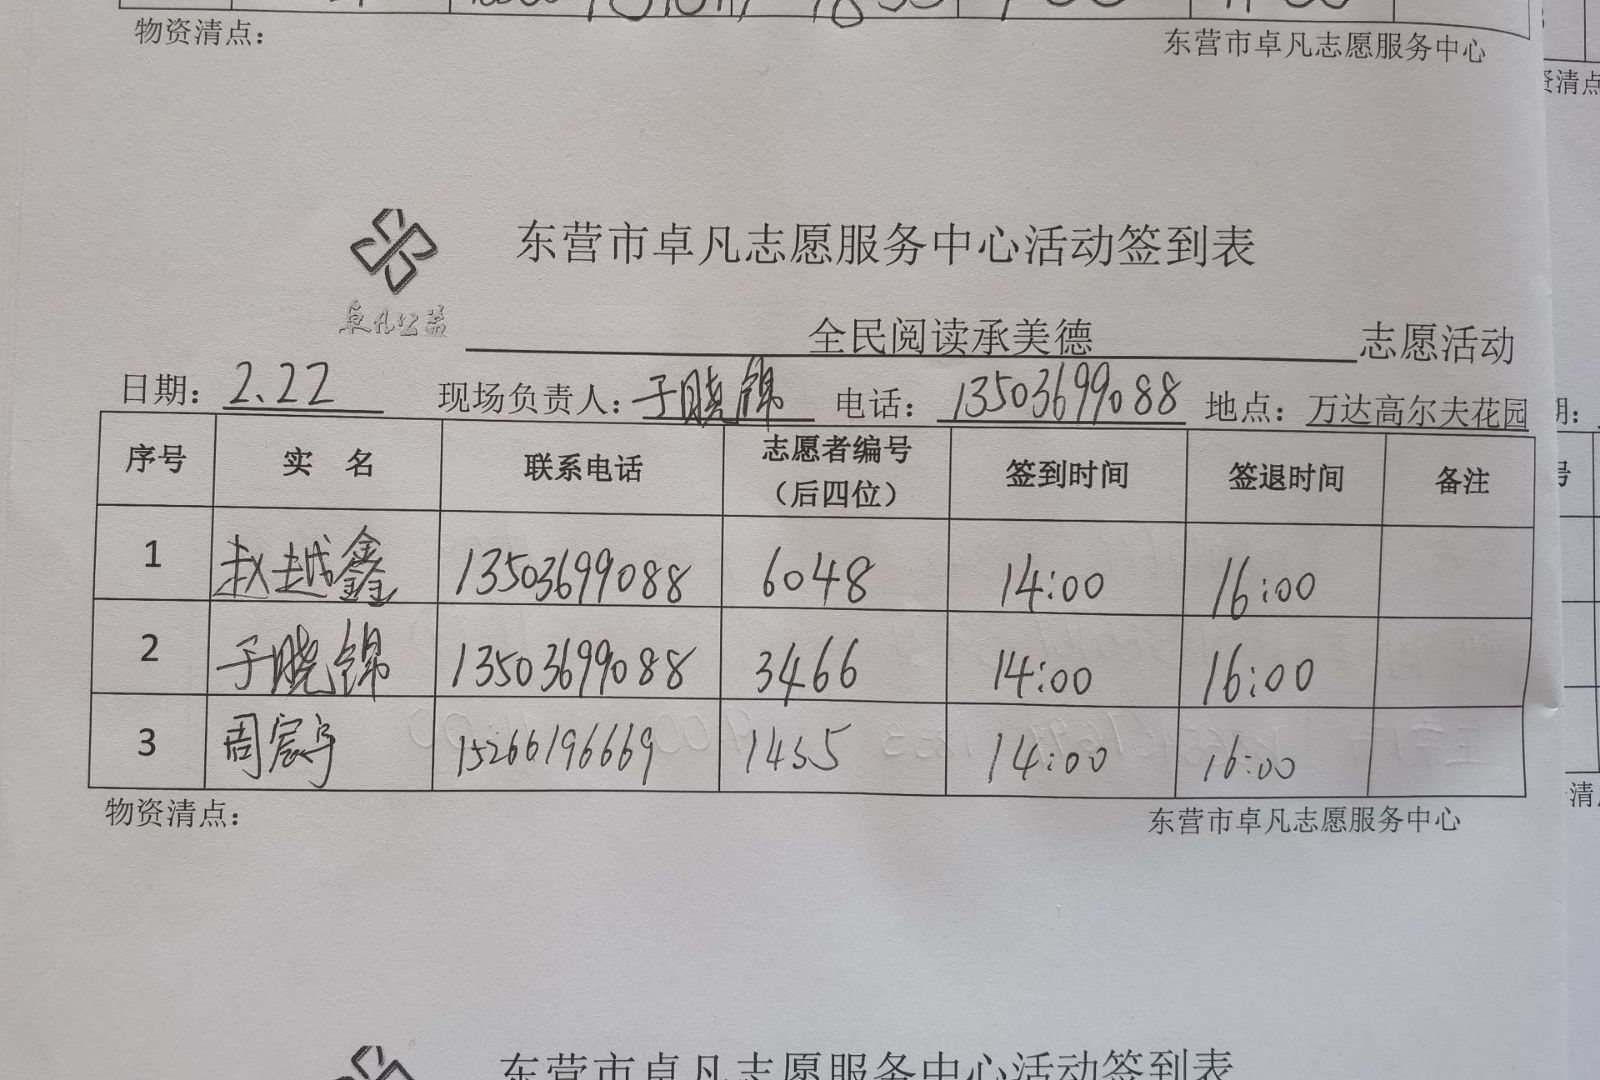 物资清点：
东营市卓凡志愿服务中心
资清点
东营市卓凡志愿服务中心活动签到表
卓凡公益
全民阅读承美德 志愿活动
日期：2.22 现场负责人：于晓锦 电话：13503699088 地点：万达高尔夫花园
序号 实 名 联系电话 志愿者编号（后四位） 签到时间 签退时间 备注
1 赵越鑫 13503699088 6048 14:00 16:00
2 于晓锦 13503699088 3466 14:00 16:00
3 周宸宇 15266196669 1435 14:00 16:00
物资清点：
东营市卓凡志愿服务中心
东营市卓凡志愿服务中心活动签到表